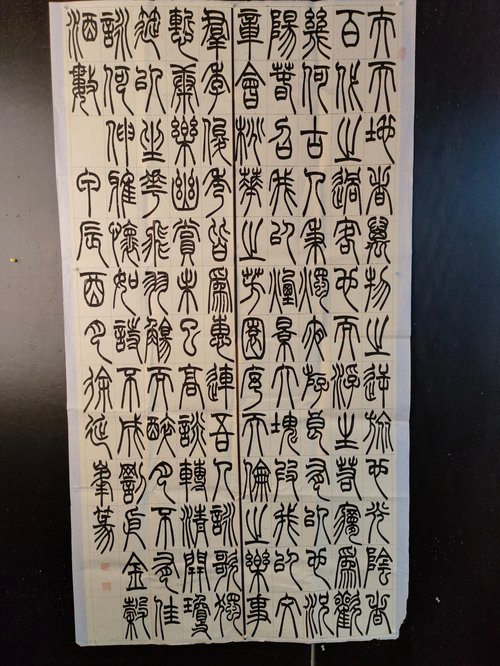 夫天地者萬物之逆旅也光陰者
百代之過客也而浮生若夢爲歡
幾何古人秉燭夜遊良有以也況
陽春召我以煙景大塊假我以文
章會桃華之芳園序天倫之樂事
羣季俊秀皆爲惠連吾人詠歌獨
慙康樂幽賞未已高談轉清開瓊
筵以坐華飛羽觴而醉月不有佳
詠何伸雅懷如詩不成罰金穀
酒數 甲辰酉月徐延篆